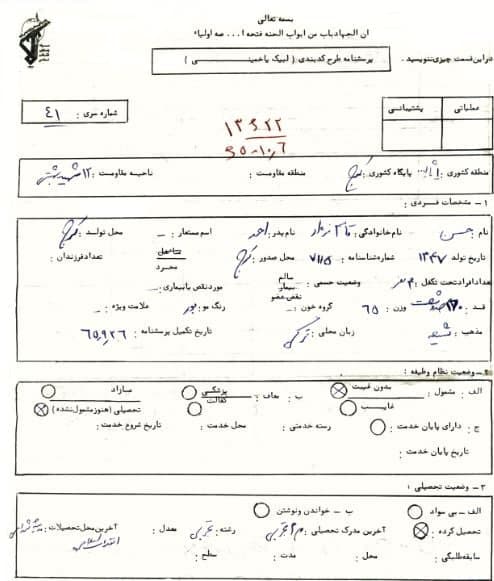 بسمه تعالی
ان الجهادباب من ابواب الجنه فتحه ا... صه اولیاء
دراین قسمت چیزی ننویسید .
پرسشنامه طرح کدبندی ( لبیک یا خمینــــــی )
عملیاتی پشتیبانی
شماره سری : ٤١
١٣٤٢٢
٩٥-١٠,٦
منطقه کشوری : پایگاه کشوری : کرج منطقه مقاومت : ناحیـه مقاومـت : ١٢
١ - مشخصات فــردی :
نام : حسن نام خانوادگی : نام پدر : احمد اسم مستعار : – محل تولـد : کرج
تاریخ تولد ١٣٤٧ شماره شناسنامه : ٧١١٥ محل صدور : کرج متاهل مجرد تعداد فرزندان :
تعداد افراد تحت تکفل : وضعیت جسمی : سالم بیمار نقص عضو مورد نقص یا بیماری :
قـد : وزن : ٦٥ گروه خون : – رنگ مو : بور علامت ویژه : –
مذهب : شیعه زبان محلی : ترکی تاریخ تکمیل پرسشنامه : ٦٥,٩,٢٦
٢ - وضعیت نظام وظیفه :
الف : مشمول : بدون غیبت غایــب ب : معاف : پزشکی کفالت مـازاد تحصیلی (هنوز مشمول نشده)
ج : دارای پایان خدمت : رسته خدمتی : محل خدمت : تاریخ شروع خدمت :
تاریخ پایان خدمت :
٣ - وضعیت تحصیلی :
الف - بی سواد ب - خواندن و نوشتن
تحصیل کرده : آخرین مدرک تحصیلی : رشته : تجربی معدل : آخرین محل تحصیلات :
انقلاب اسلامی
سابقه طلبگی : محل : مدت : سطح :